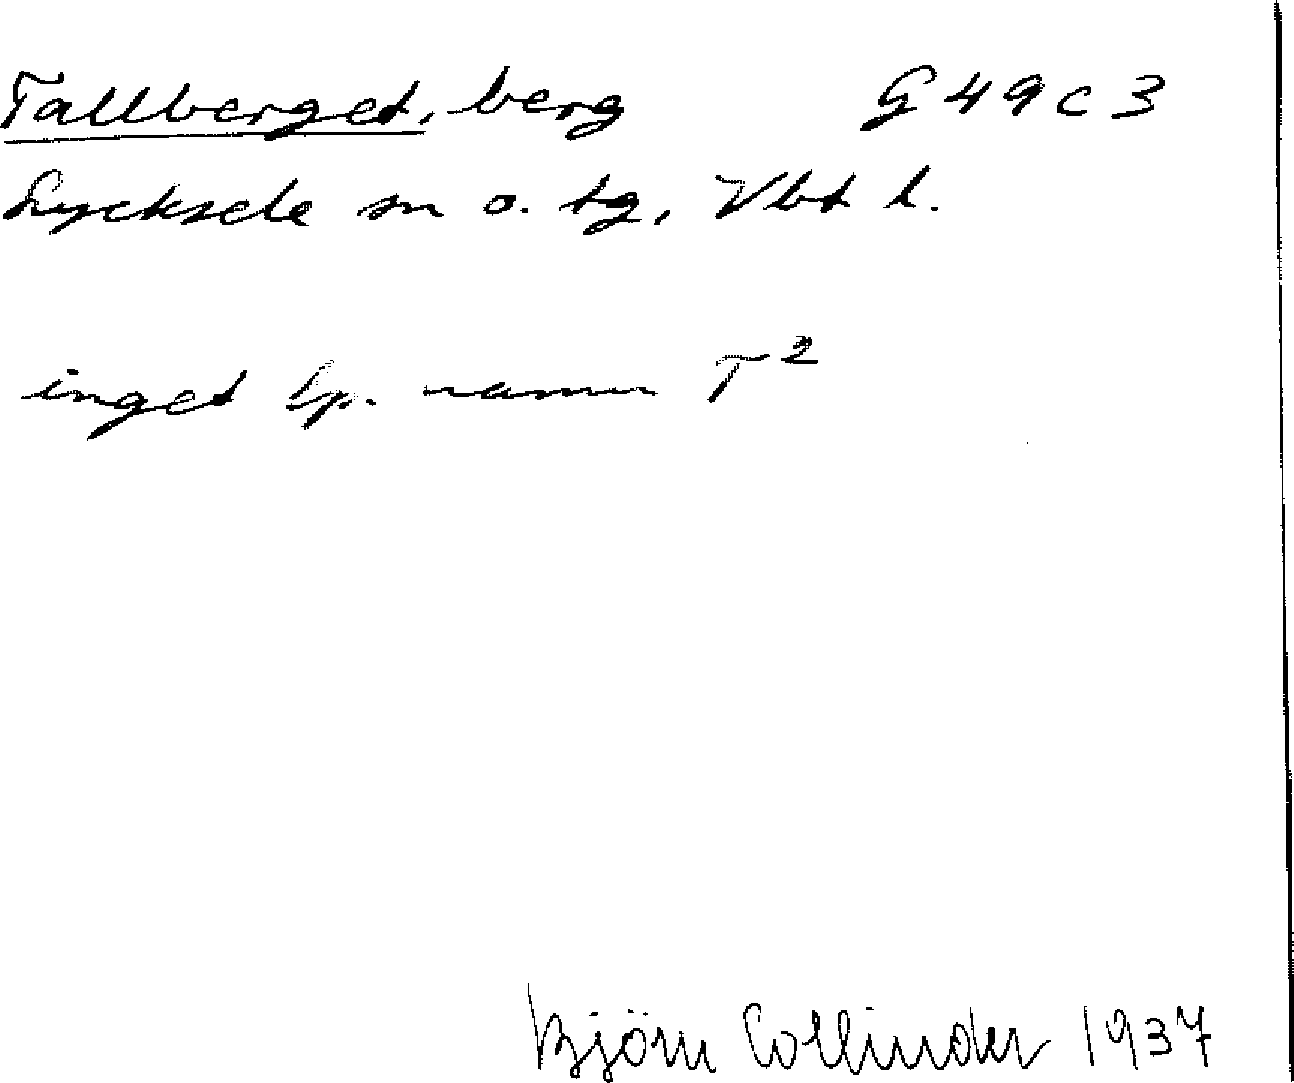 Tallberget, berg G 49 c 3
Lycksele sn o. tg, Vbt l.
inget Lp. namn T²
Björn Collinder 1937